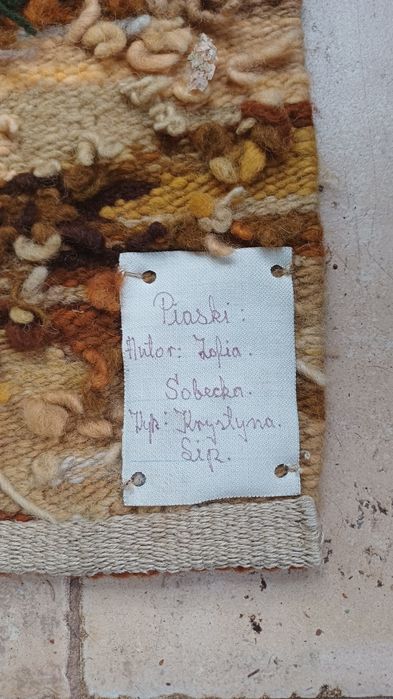 Piaski:
Autor: Zofia.
Sobecka.
Wyk: Krystyna.
Sip.